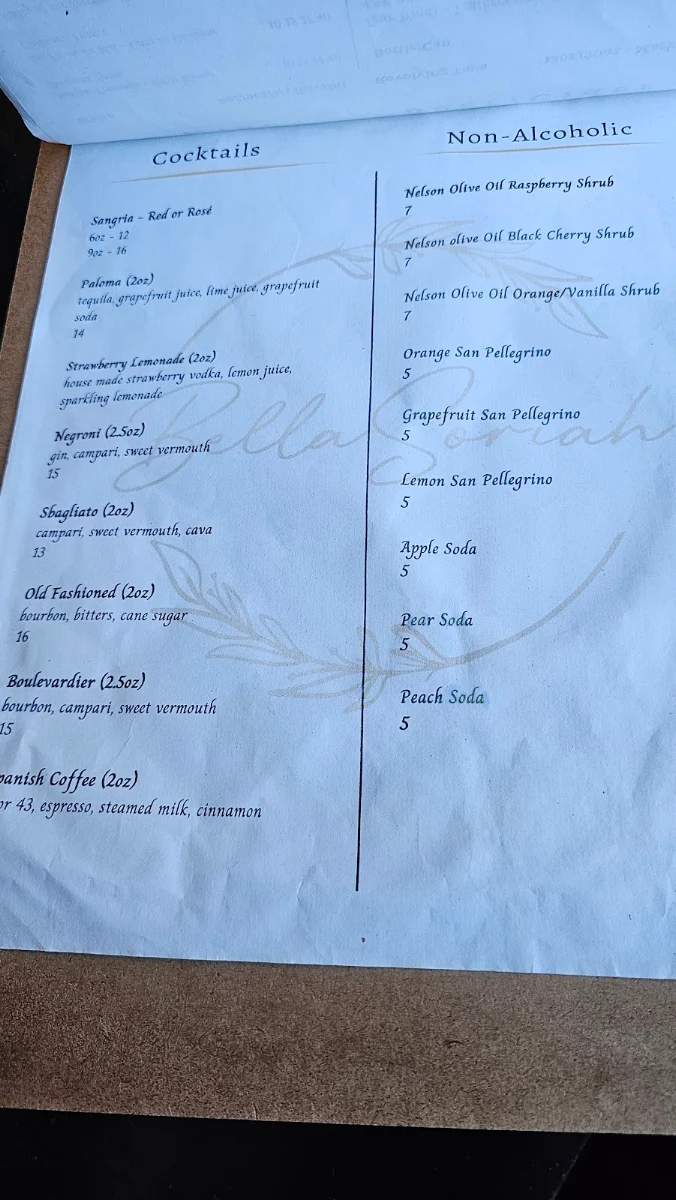 Cocktails
Sangria - Red or Rosé
6oz - 12
9oz - 16
Paloma (2oz)
tequila, grapefruit juice, lime juice, grapefruit
soda
14
Strawberry Lemonade (2oz)
house made strawberry vodka, lemon juice,
sparkling lemonade
Negroni (2.5oz)
gin, campari, sweet vermouth
15
Sbagliato (2oz)
campari, sweet vermouth, cava
13
Old Fashioned (2oz)
bourbon, bitters, cane sugar
16
Boulevardier (2.5oz)
bourbon, campari, sweet vermouth
15
panish Coffee (2oz)
or 43, espresso, steamed milk, cinnamon
Non-Alcoholic
Nelson Olive Oil Raspberry Shrub
7
Nelson olive Oil Black Cherry Shrub
7
Nelson Olive Oil Orange/Vanilla Shrub
7
Orange San Pellegrino
5
Grapefruit San Pellegrino
5
Lemon San Pellegrino
5
Apple Soda
5
Pear Soda
5
Peach Soda
5
Bella Soriah